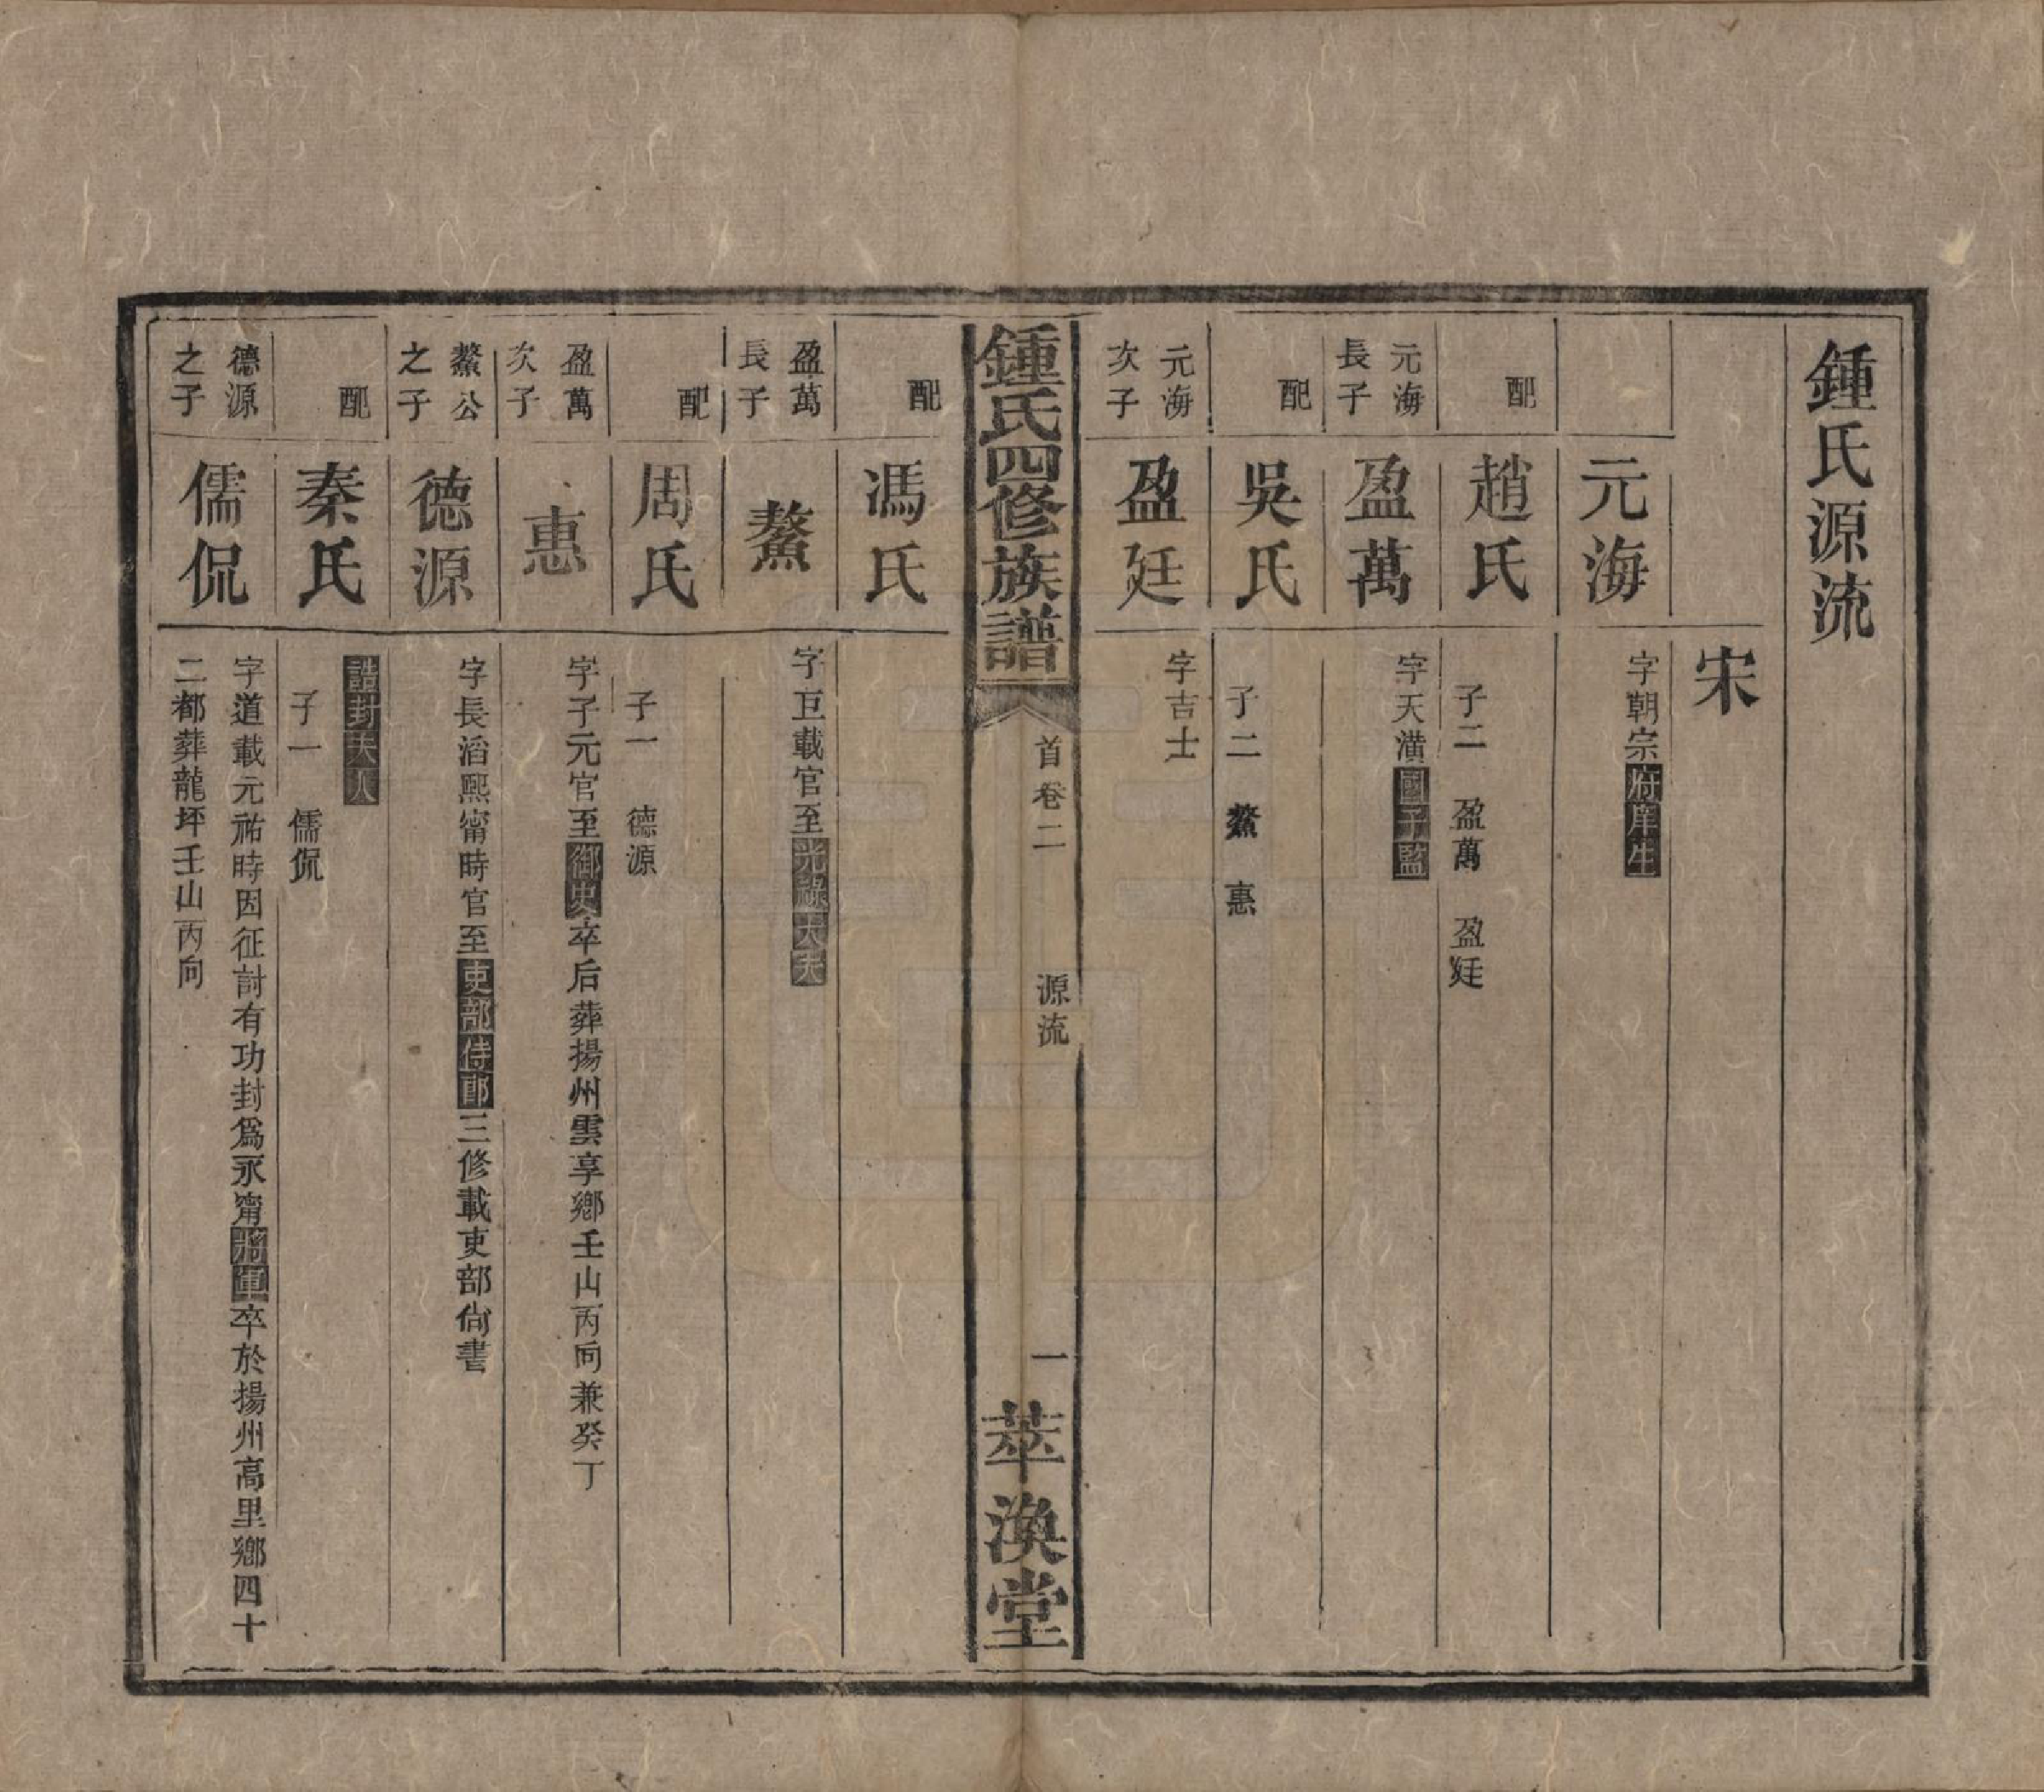 鍾氏源流
宋
元海
字朝宗府庠生
配
趙氏
子二　盈萬　盈廷
元海
長子
盈萬
字天潢國子監
配
吳氏
子二　鰲　惠
元海
次子
盈廷
字吉士
鍾氏四修族譜
首卷二
源流
一
萃渙堂
配
馮氏
盈萬
長子
鰲
字巨載官至光祿大夫
配
周氏
子一　德源
盈萬
次子
惠
字子元官至御史卒后葬揚州雲享鄉壬山丙向兼癸丁
鰲公
之子
德源
字長滔熙甯時官至吏部侍郎三修載吏部尙書
配
秦氏
誥封夫人
子一　儒侃
德源
之子
儒侃
字道載元祐時因征討有功封爲永甯將軍卒於揚州高里鄉四十
二都葬龍坪壬山丙向